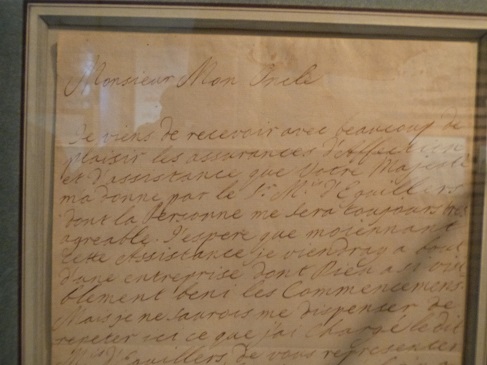 Monsieur Mon Oncle
Je viens de recevoir avec beaucoup de
plaisir les assurances d'Affection
et d'assistance que Votre Majesté
ma donné par le Sr. Mis. d'Eguillers
dont la personne me sera toujours tres
agreable. J'espere que moiennant
cette Assistance je viendray a bout
d'une entreprise dont Dieu a si visi
blement beni les Commencemens.
Mais je ne saurois me dispenser de
repeter ici ce que j'ai Chargé le dit
Mis. d'Eguillers de vous representer